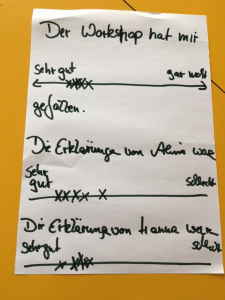 Der Workshop hat mir
sehr gut gar nicht
gefallen.
Die Erklärunge von Alina war
sehr
gut schlecht
Die Erklärung von Hanna war
sehr gut schlecht